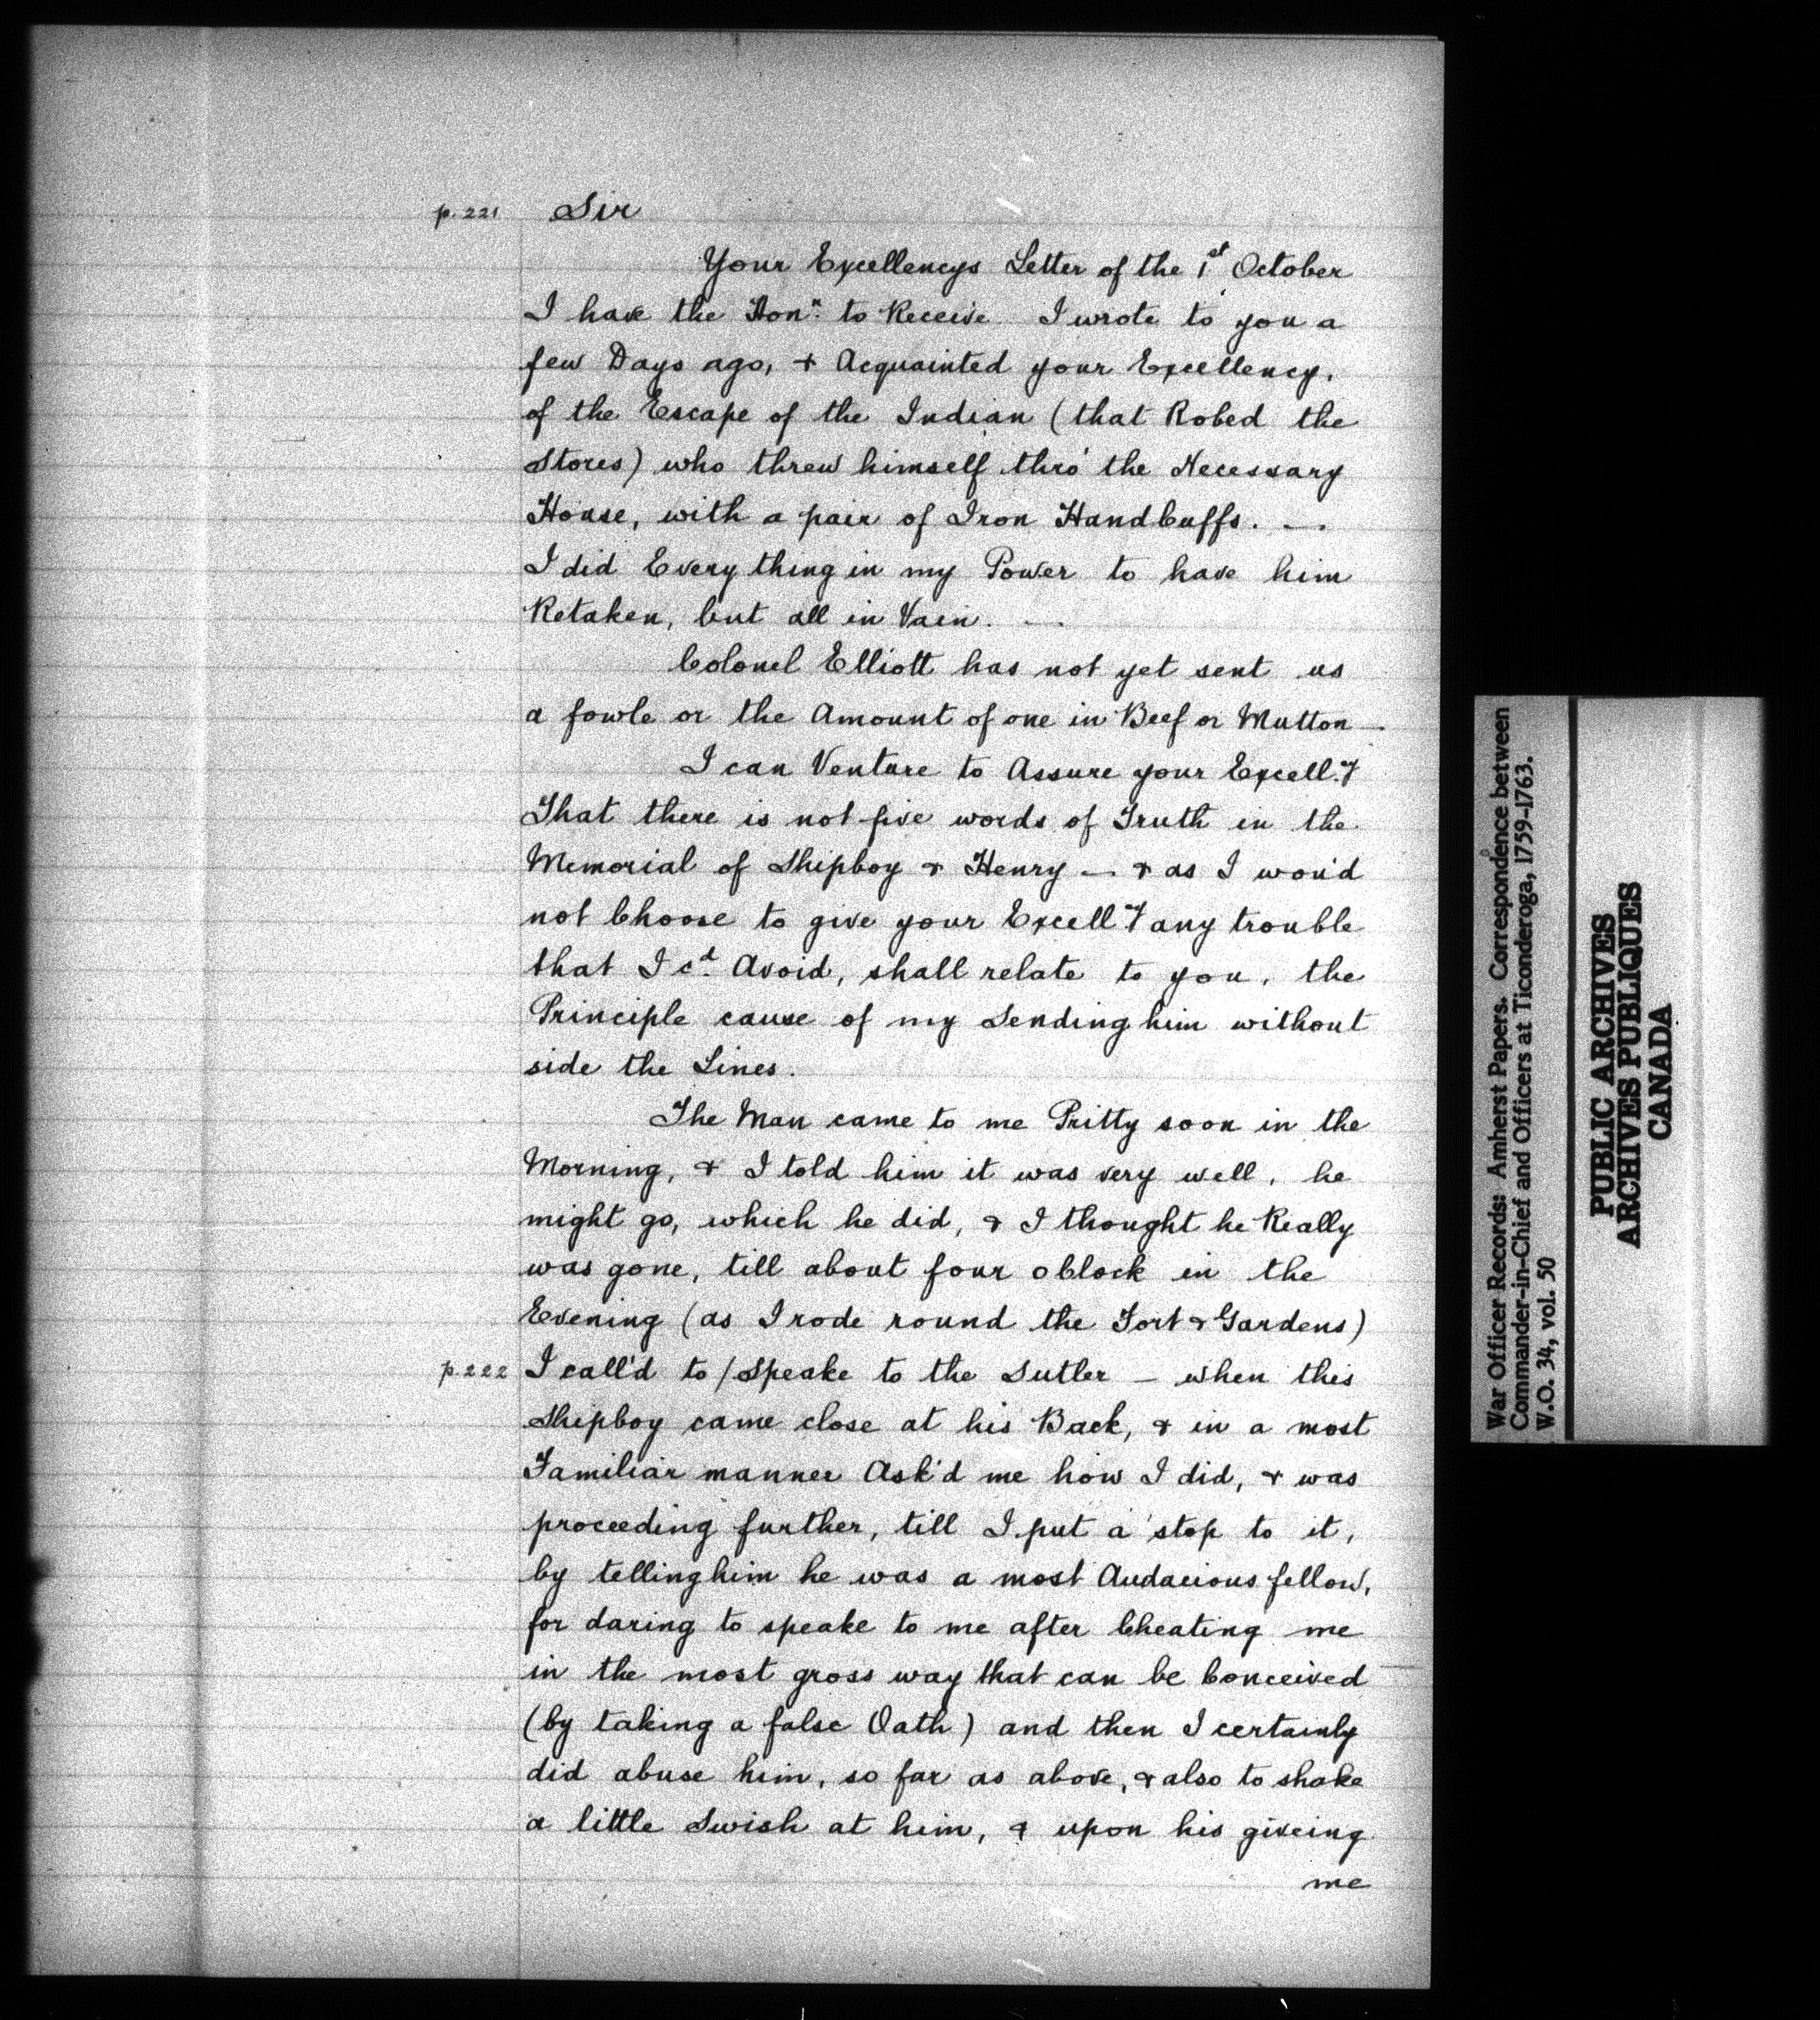 p. 221 Sir
Your Excellencys Letter of the 1st October
I have the Honr. to Receive I wrote to you a
few Days ago, & Acquainted your Excellency.
of the Escape of the Indian (that Robed the
Stores) who threw himself thro' the Necessary
House, with a pair of Iron HandCuffs. —.
I did Every thing in my Power to have him
Retaken, but all in Vain. —.
Colonel Elliott has not yet sent us
a fowle or the Amount of one in Beef or Mutton —.
I can Venture to Assure your Excell.y
That there is not five words of Truth in the
Memorial of Shipboy & Henry —. & as I wou'd
not Choose to give your Excell.y any trouble
that I cd. Avoid, shall relate to you, the
Principle cause of my Sending him without
side the Lines.
The Man came to me Pritty soon in the
Morning, & I told him it was very well, he
might go, which he did, & I thought he Really
was gone, till about four oClock in the
Evening (as I rode round the Fort & Gardens)
p. 222 I call'd to / Speake to the Sutler — when this
Shipboy came close at his Back, & in a most
Familiar manner Ask'd me how I did, & was
proceeding further, till I put a stop to it,
by telling him he was a most Audacious fellow,
for daring to speake to me after Cheating me
in the most gross way that can be Conceived
(by taking a false Oath) and then I certainly
did abuse him, so far as above, & also to shake
a little Swish at him, & upon his giveing
me
War Officer Records: Amherst Papers. Correspondence between
Commander-in-Chief and Officers at Ticonderoga, 1759-1763.
W.O. 34, vol. 50
PUBLIC ARCHIVES
ARCHIVES PUBLIQUES
CANADA